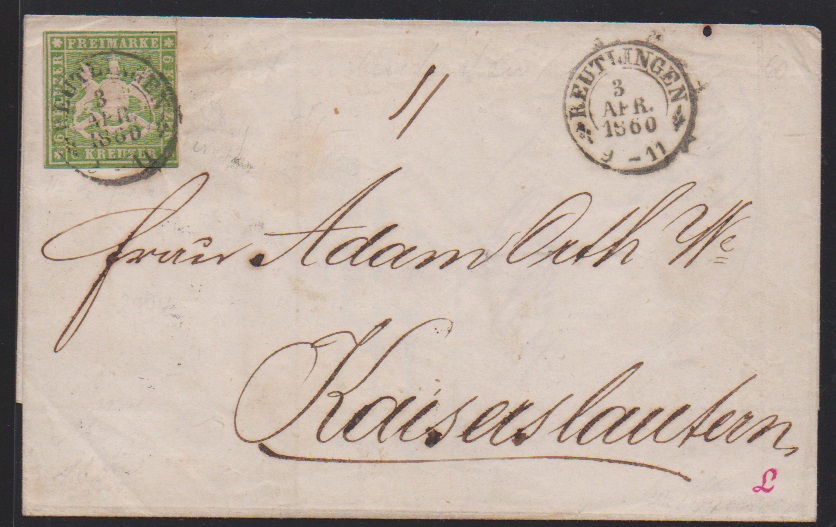 FREIMARKE
KREUZER
REUTLINGEN
3
APR.
1860
REUTLINGEN
3
APR.
1860
6 - 11
Frau Adam Orth We
Kaiserslautern
L